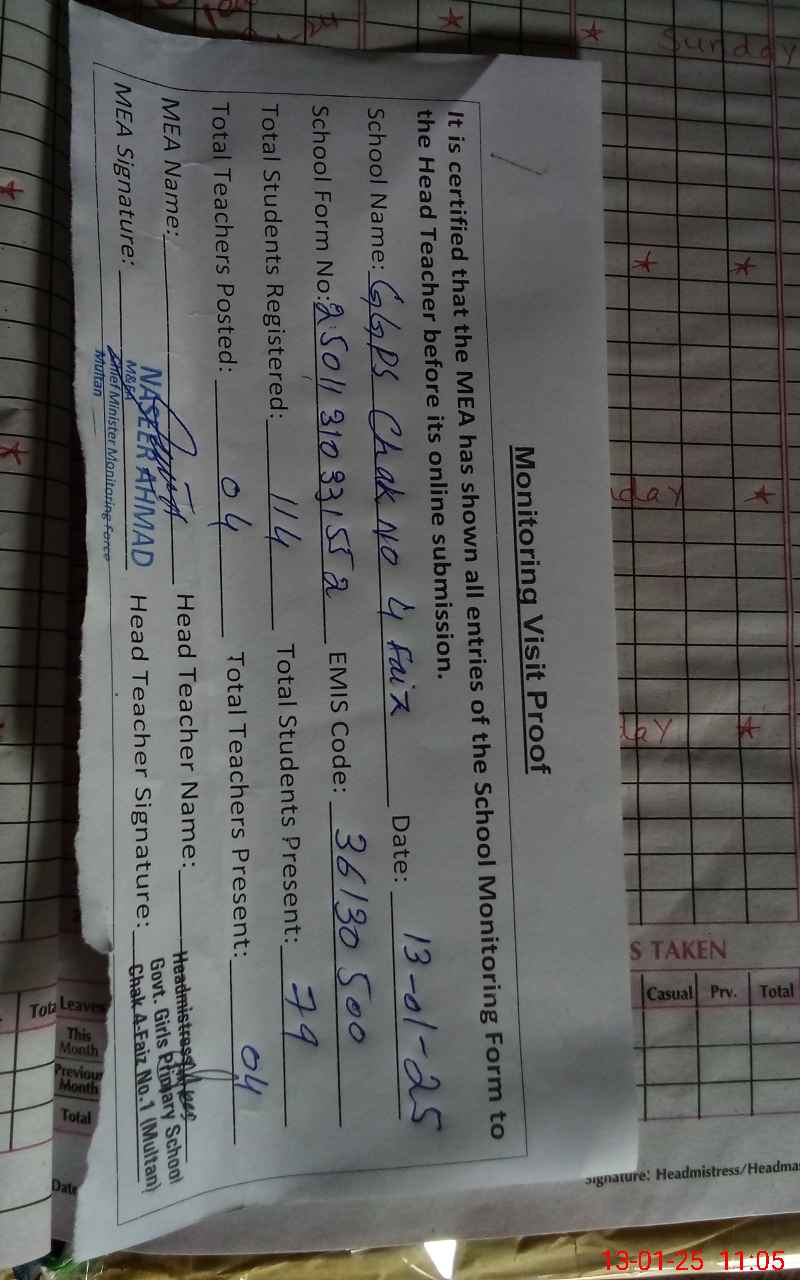 Monitoring Visit Proof
It is certified that the MEA has shown all entries of the School Monitoring Form to
the Head Teacher before its online submission.
School Name: GGPS Chak No 4 Faiz Date: 13-01-25
School Form No: 2501131033152 EMIS Code: 36130500
Total Students Registered: 114 Total Students Present: 79
Total Teachers Posted: 04 Total Teachers Present: 04
MEA Name: Head Teacher Name:
MEA Signature: Head Teacher Signature:
NASEER AHMAD
M&EA
Chief Minister Monitoring Force
Multan
Headmistress
Govt. Girls Primary School
Chak 4-Faiz No.1 (Multan)
Sunday
day
day
S TAKEN
Casual Prv. Total
Leaves
This Month
Previous Month
Total
Date
Signature: Headmistress/Headma
13-01-25 11:05